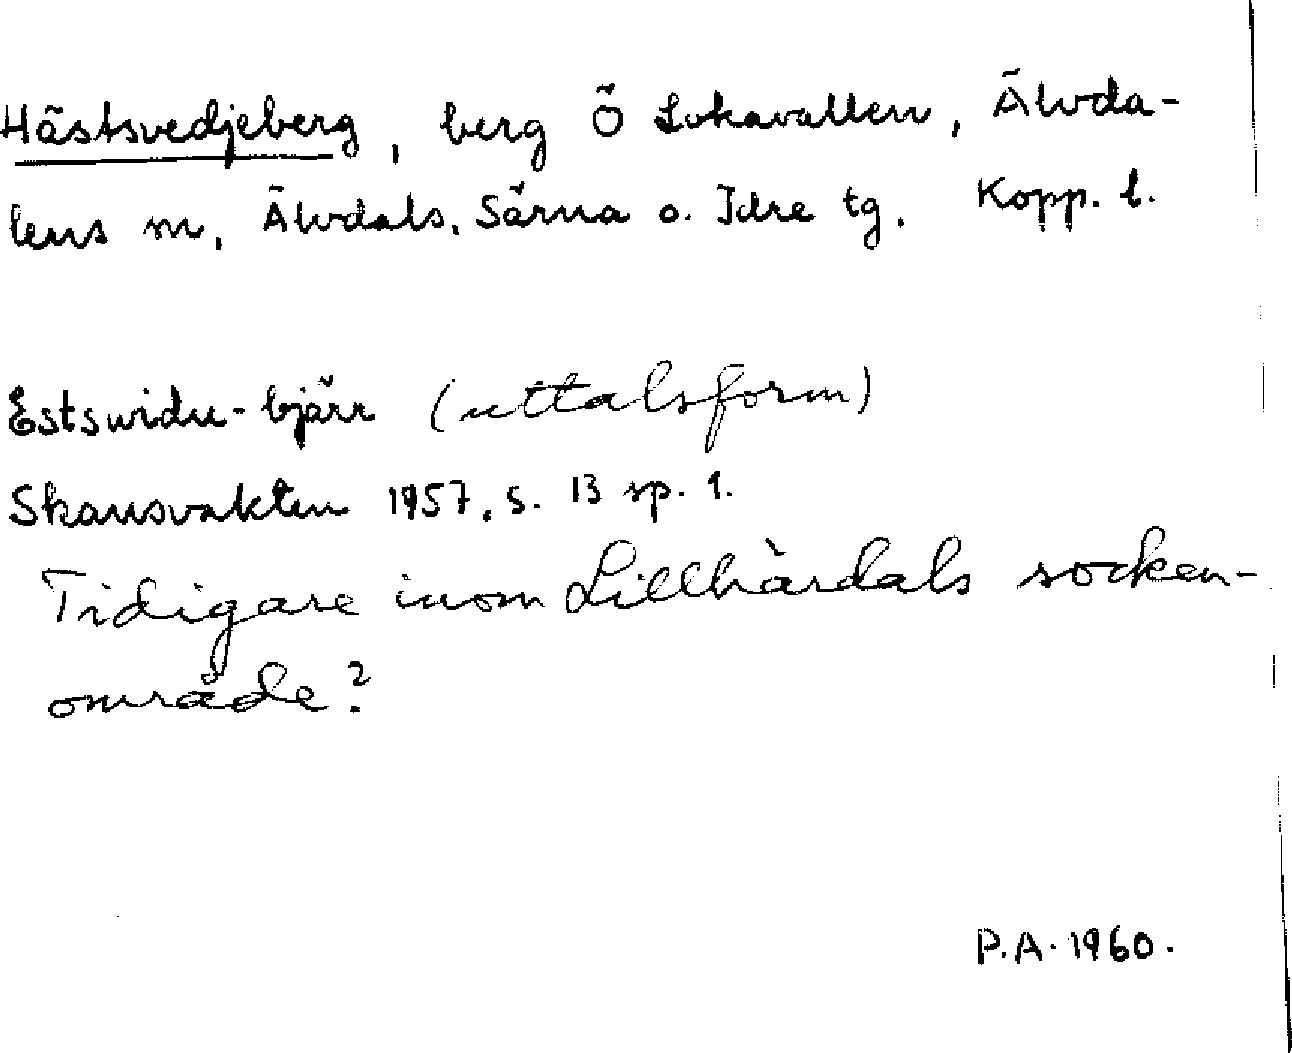 Hästsvedjeberg, berg Ö Lokavallen, Älvda-
lens m, Älvdals, Särna o. Idre tg. Kopp. l.
Estswidu-bjärr (uttalsform)
Skansvakten 1957, s. 13 sp. 1.
Tidigare inom Lillhärdals socken-
område?
P.A. 1960.